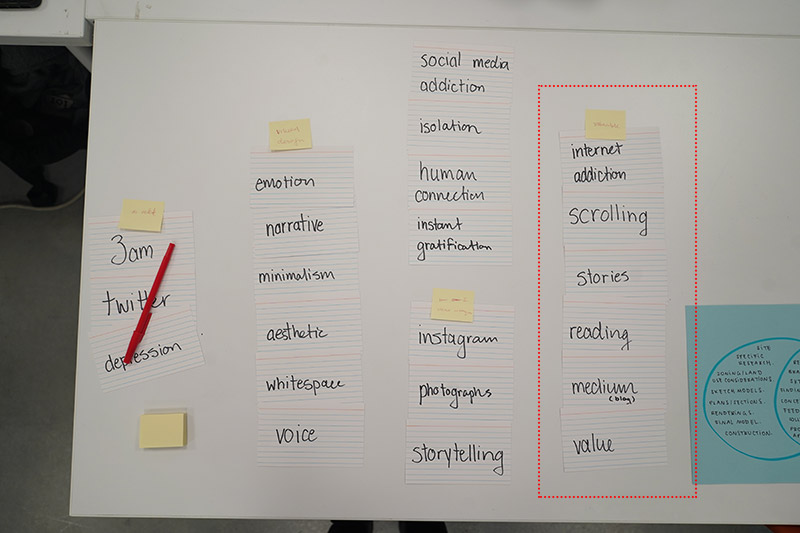 3am
twitter
depression
visual
design
emotion
narrative
minimalism
aesthetic
whitespace
voice
social media
addiction
isolation
human
connection
instant
gratification
instagram
photographs
storytelling
internet
addiction
scrolling
stories
reading
medium
(blog)
value
SITE
SPECIFIC
RESEARCH
ZONING/LAND
USE CONSIDERATIONS
SKETCH MODELS.
PLANS/SECTIONS.
RENDERINGS.
FINAL MODEL.
CONSTRUCTION.